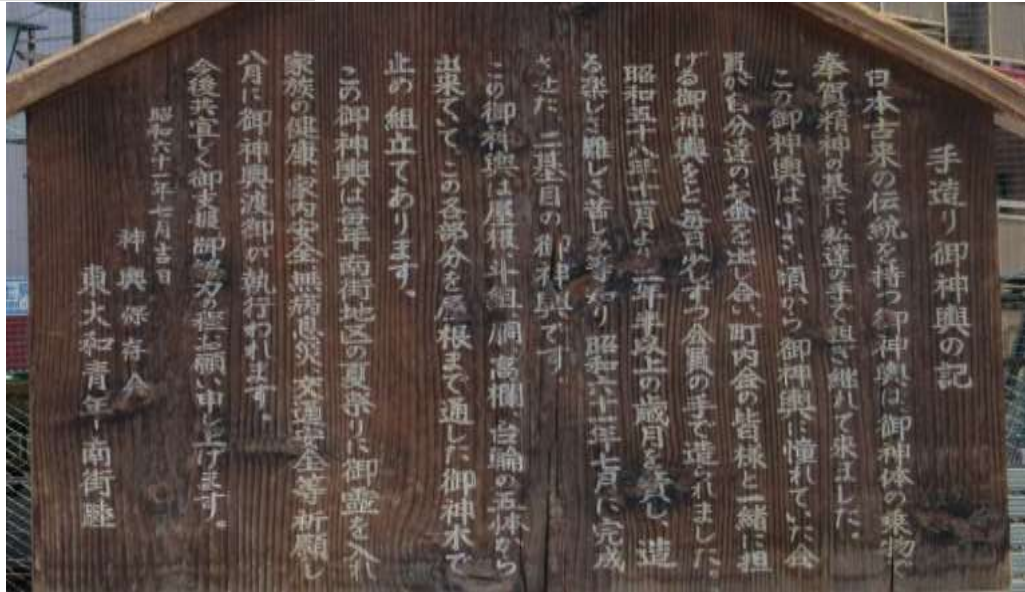 手造り御神輿の記
日本古来の伝統を持つ御神輿は、御神体の乗物で
奉賀精神の基に、私達の手で担ぎ継れて来ました。
この御神輿は小さい頃から御神輿に憧れていた会
員が自分達のお金を出し合い、町内会の皆様と一緒に担
げる御神輿をと毎日少しずつ会員の手で造られました。
昭和五十八年十一月より二年半以上の歳月を費し、造
る楽しさ難しさ苦しみ等を知り昭和六十一年七月に完成
させた二基目の御神輿です。
この御神輿は屋根、斗組、胴、高欄、台輪の五体から
出来ていてこの各部分を屋根まで通した御神木で
止め組立てあります。
この御神輿は毎年南街地区の夏祭りに御霊を入れ
家族の健康、家内安全、無病息災、交通安全等祈願し
八月に御神輿渡御が執行われます。
今後共宜しく御支援御協力の程お願い申し上げます。
昭和六十一年七月吉日
神輿保存会
東大和青年南街睦